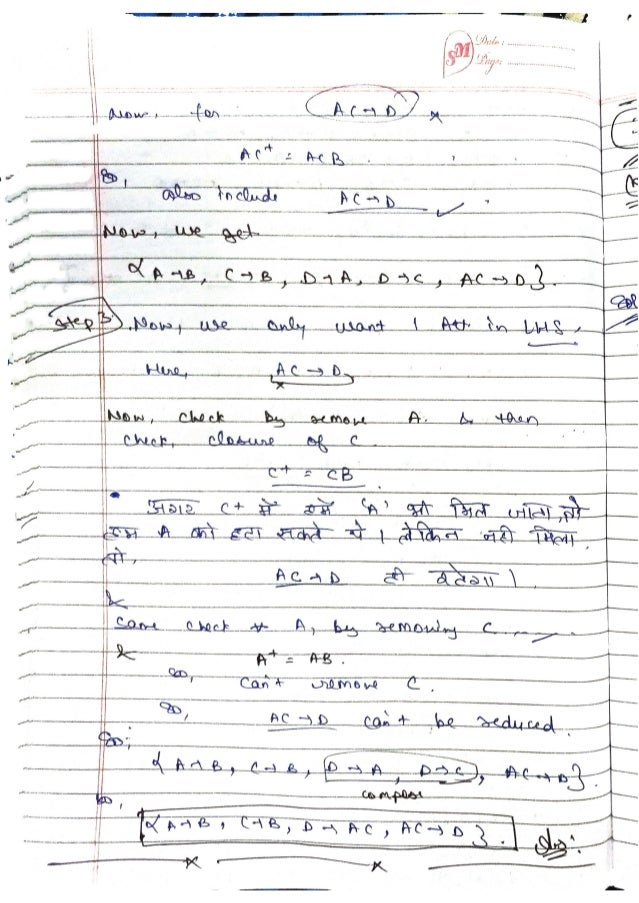 SM Date:
Page:
Now, for AC→D ×
AC⁺ = ACB
So,
also include AC→D ✓
Now, we get
{A→B, C→B, D→A, D→C, AC→D}.
Step 3 Now, we only want 1 Att in LHS.
Here, AC→D
×
Now, check by remove A. & then
check, closure of C
C⁺ = CB
• अगर C+ में हमें 'A' भी मिल जाता, तो
हम A को हटा सकते थे। लेकिन नहीं मिला
तो,
AC→D ही रहेगा।
&
Same check A, by removing C
& A⁺ = AB.
So, can't remove C.
So, AC→D can't be reduced.
So,
{A→B, C→B, D→A, D→C, AC→D}.
compose
So,
{A→B, C→B, D→AC, AC→D}. Ans:
× ×
Sol